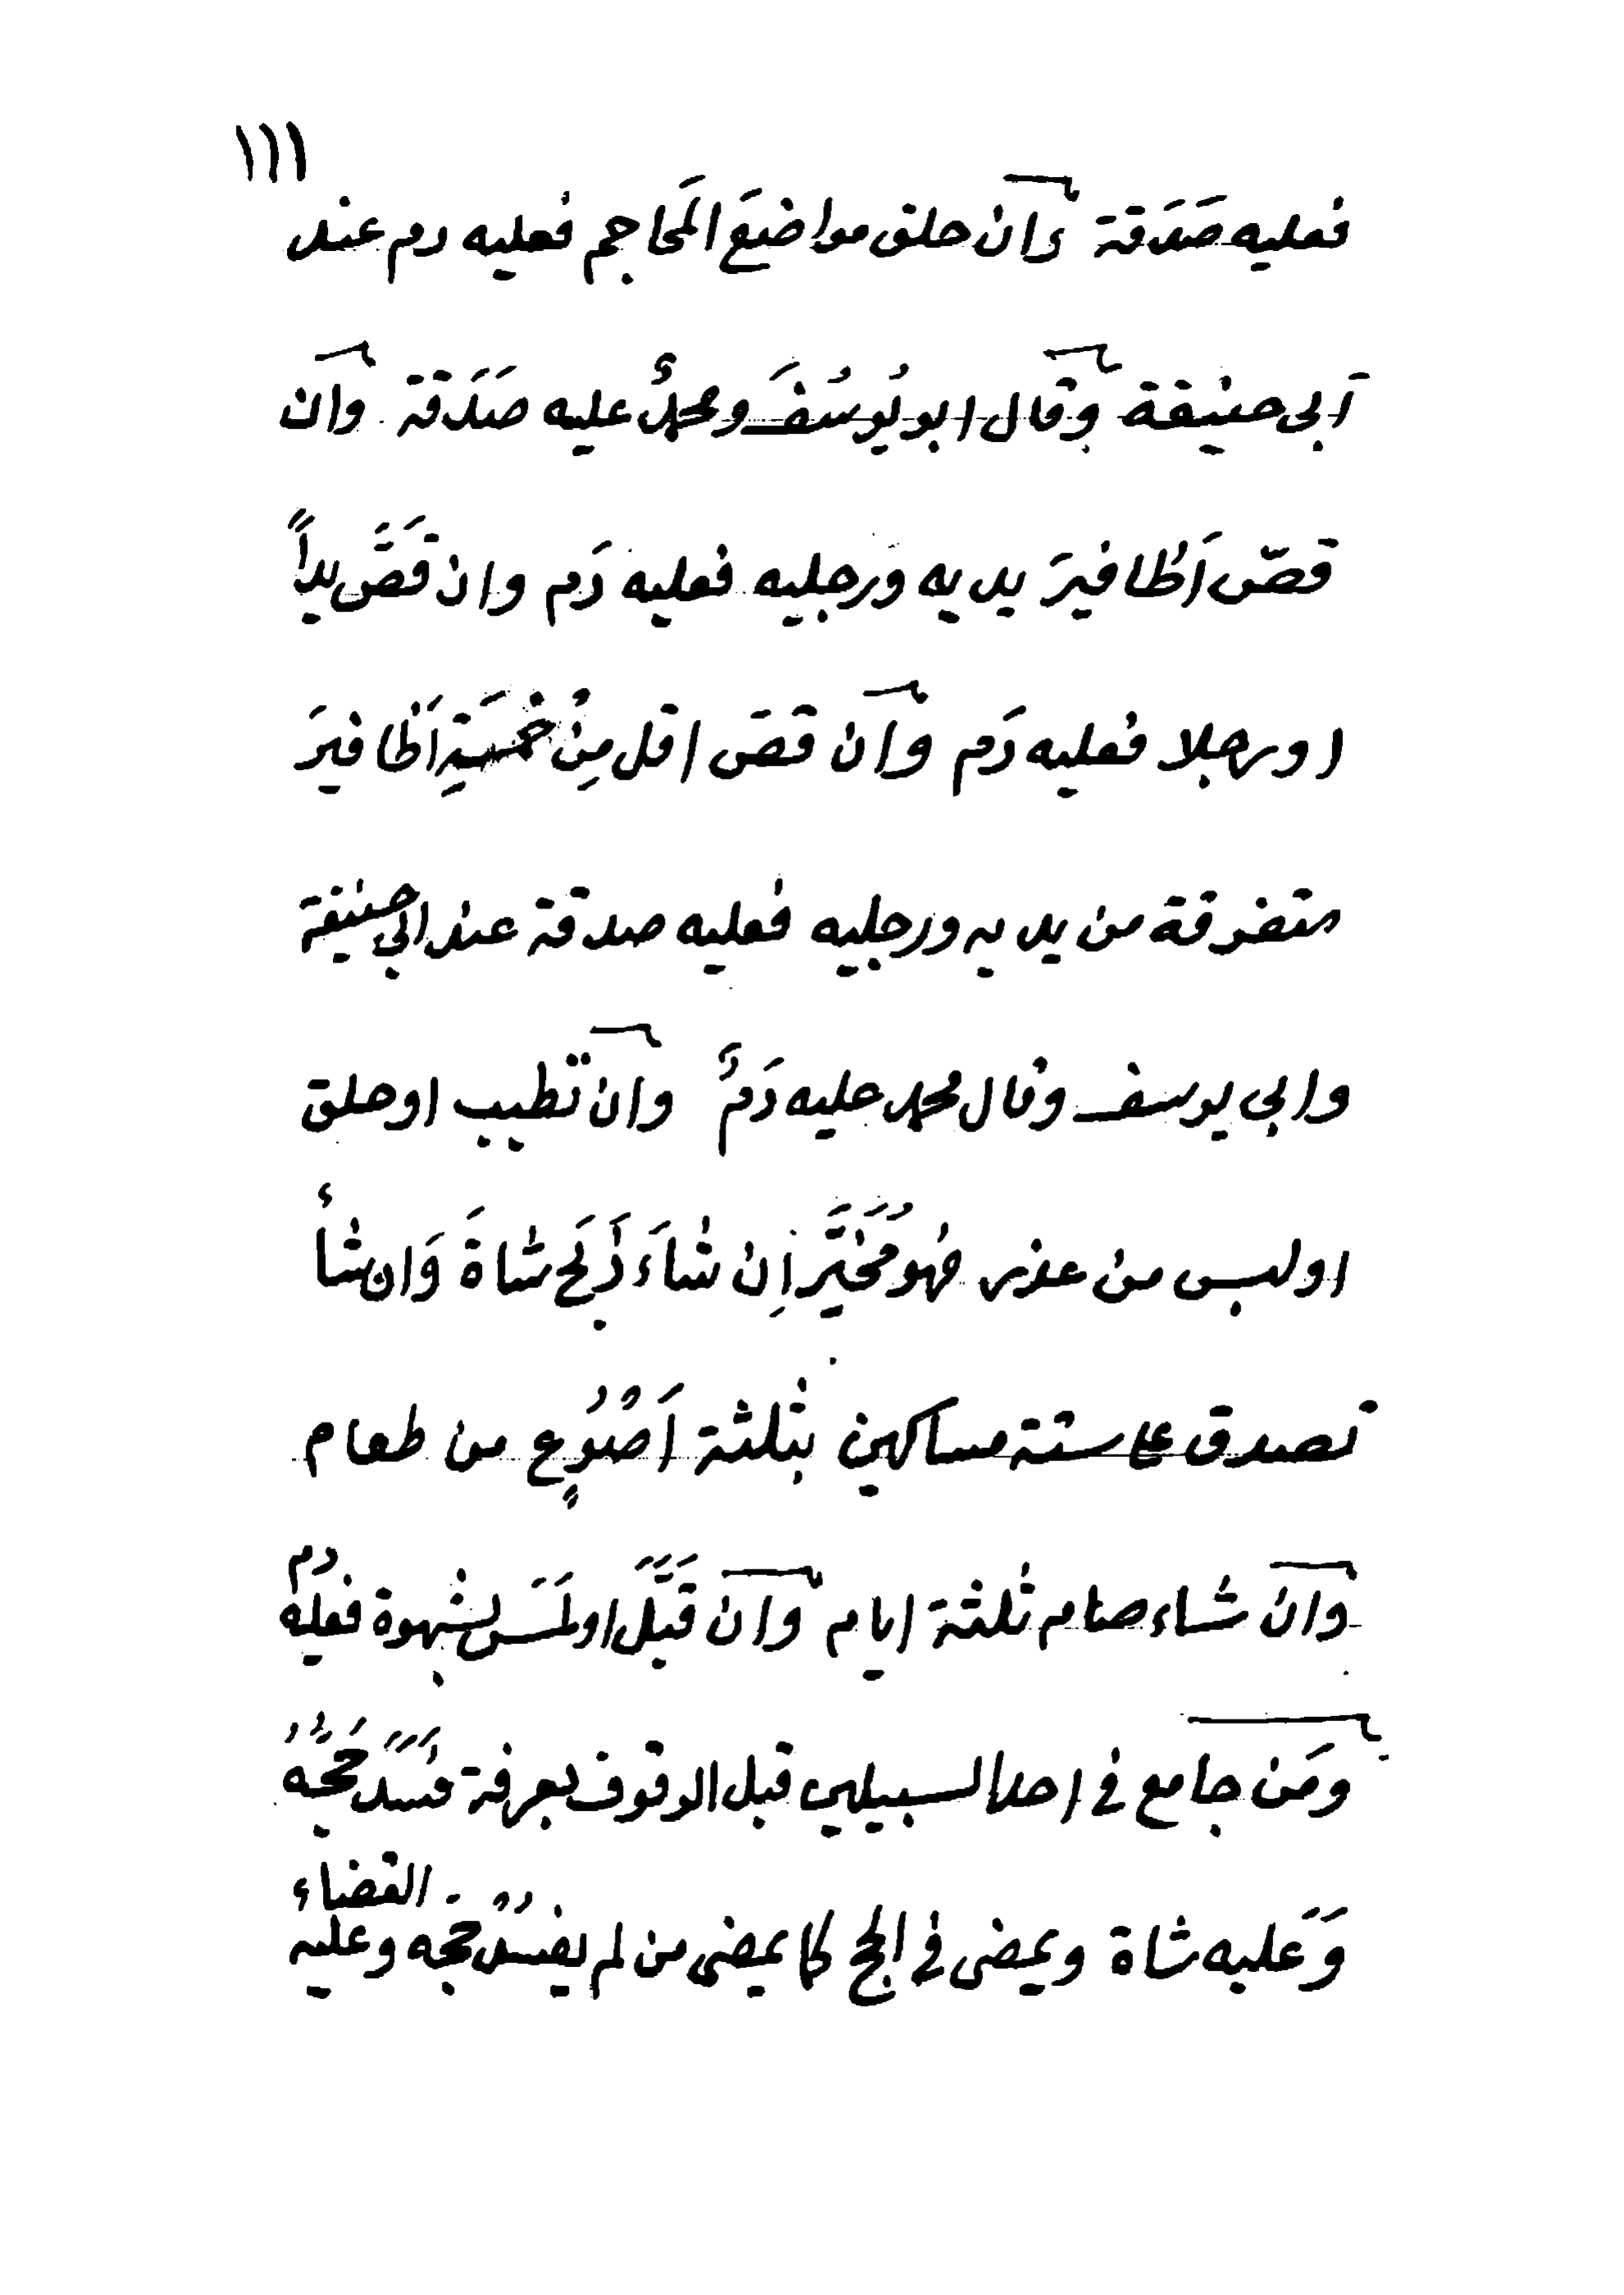 ١١١
فعليه صَدَقة وان حلق مواضيعَ المَحاجم فعليه دم عند
اَبى حنيفة وقال ابو يُوسُفَ ومحمدٌ عليه صَدَقة وان
قصّ اَظافيرَ يديه ورجليه فعليه دَم وان قَصَّ يداً
او رجلا فعليه دَم وان قصَ اقل مِنْ خمسَةِ اَظافيرَ
متفرقة من يديه ورجليه فعليه صدقة عند ابي حنيفة
وابى يوسف وقال محمد عليه دَمٌ وان تطيب او حلق
او لبس من عذر فهو مُخَيَّر اِن شاءَ ذَبَح شاةَ وَان شأ
تصدق على ستة مساكين بثلثة اَصْوُعٍ من طعام
وان شاء صام ثلثة ايام وان قَبَّلَ او لمَسَ بشهوة فعليه دم
ومَن جامع في احد السبيلين قبل الوقوف بعرفة فسَدَ حَجُّهُ
وَعَليه شاة ويمضى في الحج كما يمضى من لم يفسُد حجَه وعليه القضاء